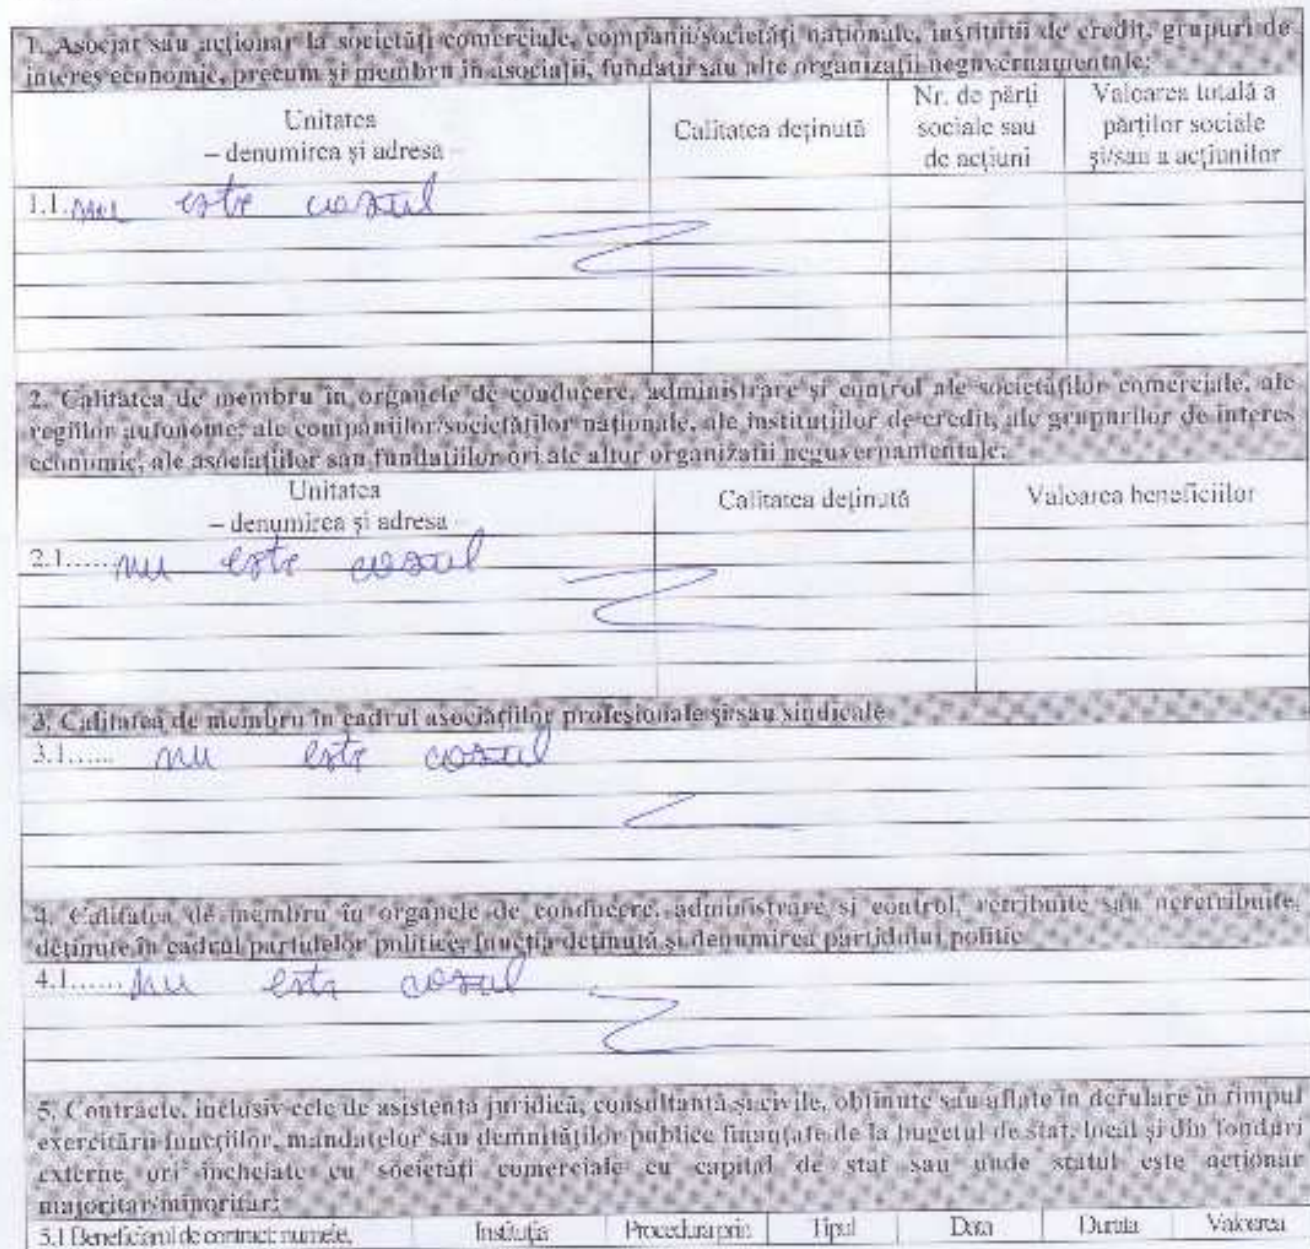 1. Asociat sau acţionar la societăţi comerciale, companii/societăţi naţionale, instituţii de credit, grupuri de
interes economic, precum şi membru în asociaţii, fundaţii sau alte organizaţii neguvernamentale:
Unitatea
– denumirea şi adresa –
Calitatea deţinută
Nr. de părţi
sociale sau
de acţiuni
Valoarea totală a
părţilor sociale
şi/sau a acţiunilor
1.1. nu este cazul
2. Calitatea de membru în organele de conducere, administrare şi control ale societăţilor comerciale, ale
regiilor autonome, ale companiilor/societăţilor naţionale, ale instituţiilor de credit, ale grupurilor de interes
economic, ale asociaţiilor sau fundaţiilor ori ale altor organizaţii neguvernamentale:
Unitatea
– denumirea şi adresa –
Calitatea deţinută
Valoarea beneficiilor
2.1..... nu este cazul
3. Calitatea de membru în cadrul asociaţiilor profesionale şi/sau sindicale
3.1...... nu este cazul
4. Calitatea de membru în organele de conducere, administrare şi control, retribuite sau neretribuite,
deţinute în cadrul partidelor politice, funcţia deţinută şi denumirea partidului politic
4.1...... nu este cazul
5. Contracte, inclusiv cele de asistenţă juridică, consultanţă şi civile, obţinute sau aflate în derulare în timpul
exercitării funcţiilor, mandatelor sau demnităţilor publice finanţate de la bugetul de stat, local şi din fonduri
externe ori încheiate cu societăţi comerciale cu capital de stat sau unde statul este acţionar
majoritar/minoritar:
5.1 Beneficiarul de contract: numele,
Instituţia
Procedura prin
Tipul
Data
Durata
Valoarea